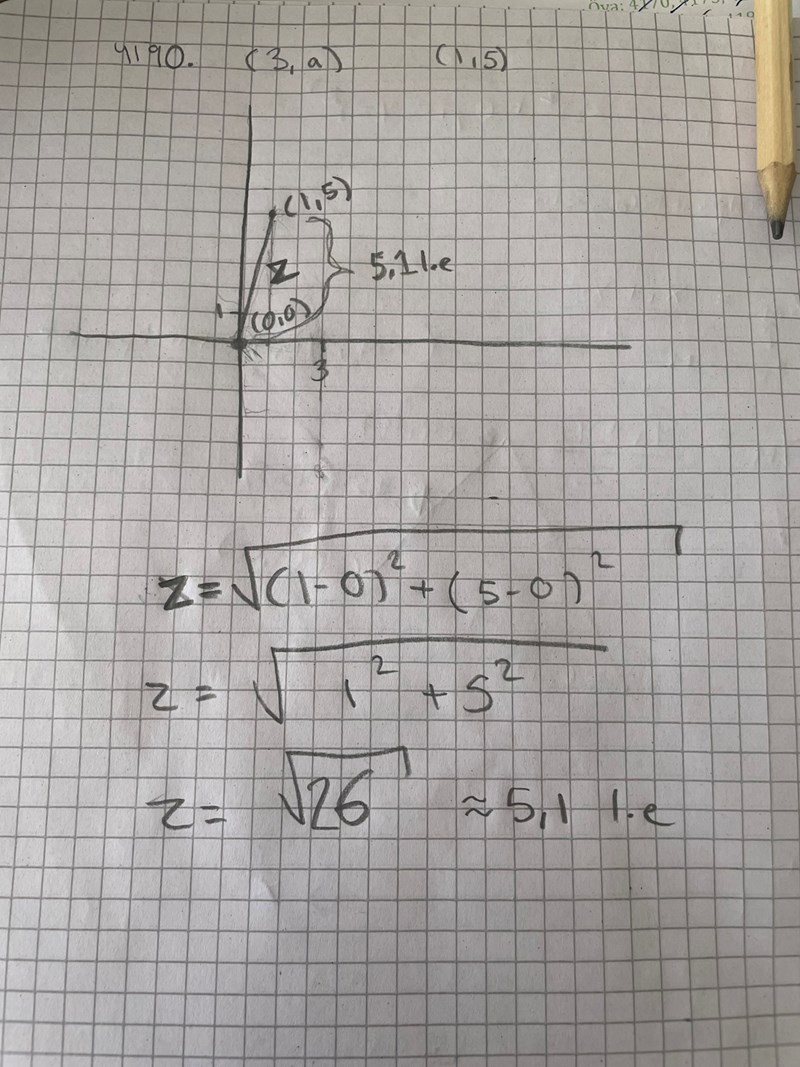 4190. (3, a) (1,5)
(1,5)
z } 5,1 l.e
1 (0,0)
3
z = √(1-0)² + (5-0)²
z = √1² + 5²
z = √26 ≈ 5,1 l.e